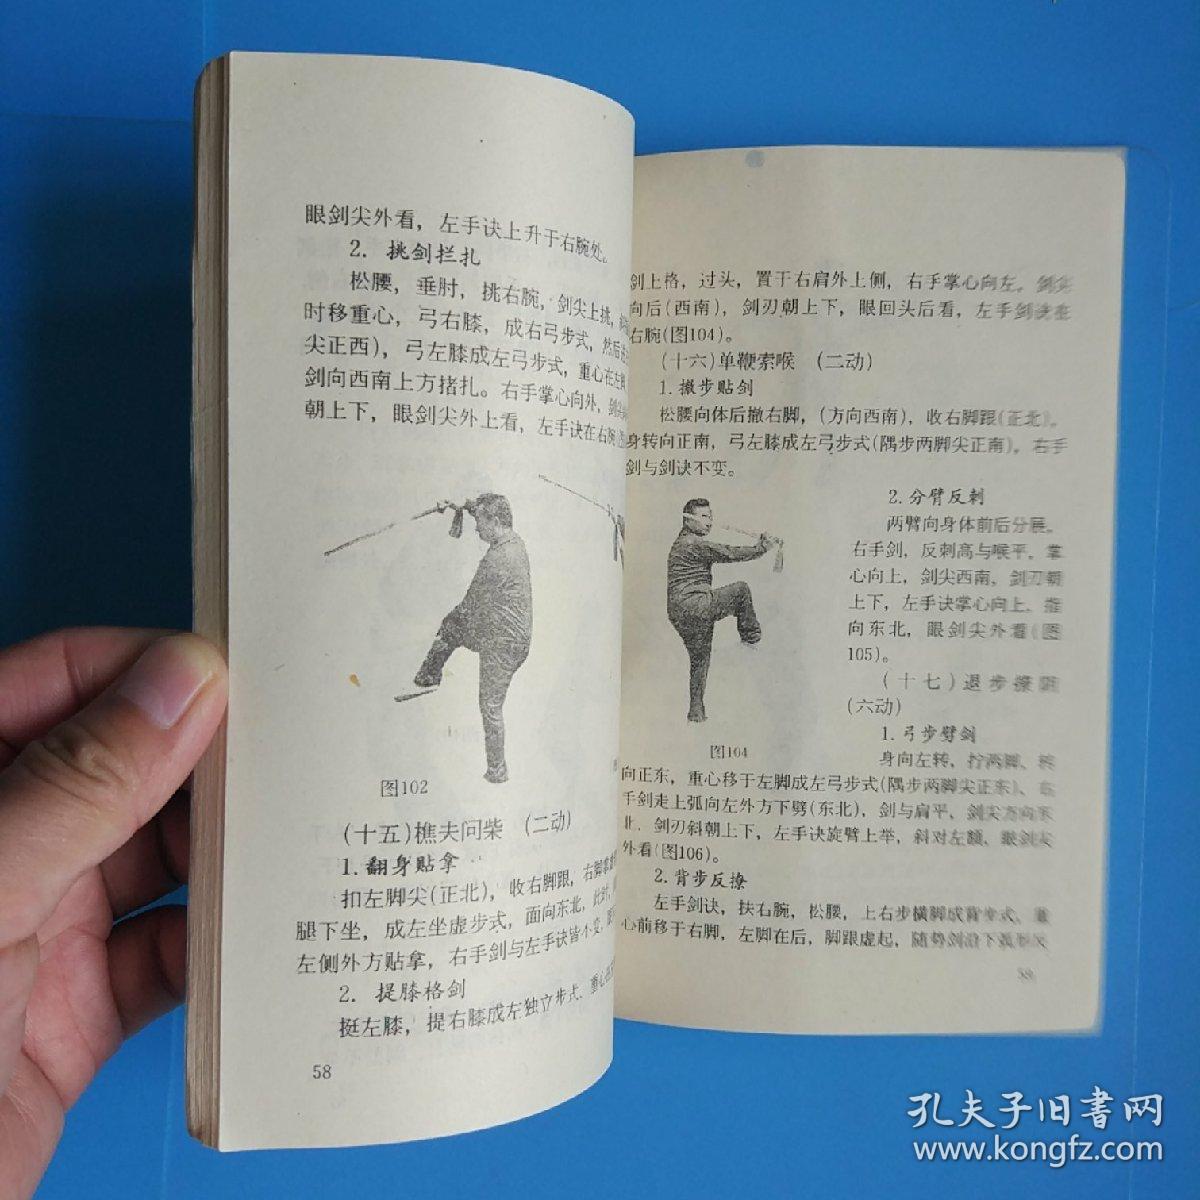 眼剑尖外看，左手诀上升于右腕处。
2. 挑剑拦扎
松腰，垂肘，挑右腕，剑尖上挑，
时移重心，弓右膝，成右弓步式，然后
尖正西)，弓左膝成左弓步式，重心在左
剑向西南上方捅扎。右手掌心向外，剑
朝上下，眼剑尖外上看，左手诀在右腕
图102
(十五)樵夫问柴 (二动)
1.翻身贴拿
扣左脚尖(正北)，收右脚跟，右脚
腿下坐，成左坐虚步式，面向东北，此时，
左侧外方贴拿，右手剑与左手诀皆不变，
2. 提膝格剑
挺左膝，提右膝成左独立步式，重心在
58
剑上格，过头，置于右肩外上侧，右手掌心向左。剑尖
向后(西南)，剑刃朝上下，眼回头后看，左手剑诀在
右腕(图104)。
(十六)单鞭索喉 (二动)
1.撤步贴剑
松腰向体后撤右脚，(方向西南)，收右脚跟(正北)。
身转向正南，弓左膝成左弓步式(隅步两脚尖正南)。右手
剑与剑诀不变。
2.分臂反刺
两臂向身体前后分展。
右手剑，反刺高与喉平。掌
心向上，剑尖西南，剑刃朝
上下，左手诀掌心向上。指
向东北，眼剑尖外看(图
105)。
(十七)退步撩阴
(六动)
1.弓步劈剑
图104
身向左转，拧两脚、转
向正东，重心移于左脚成左弓步式(隅步两脚尖正东)、右
手剑走上弧向左外方下劈(东北)，剑与肩平，剑尖方向东
北．剑刃斜朝上下，左手诀旋臂上举，斜对左额、眼剑尖
外看(图106)。
2.背步反撩
左手剑诀，扶右腕，松腰，上右步横脚成背步式，重
心前移于右脚，左脚在后，脚跟虚起，随势剑沿下弧形反
59
孔夫子旧书网
www.kongfz.com